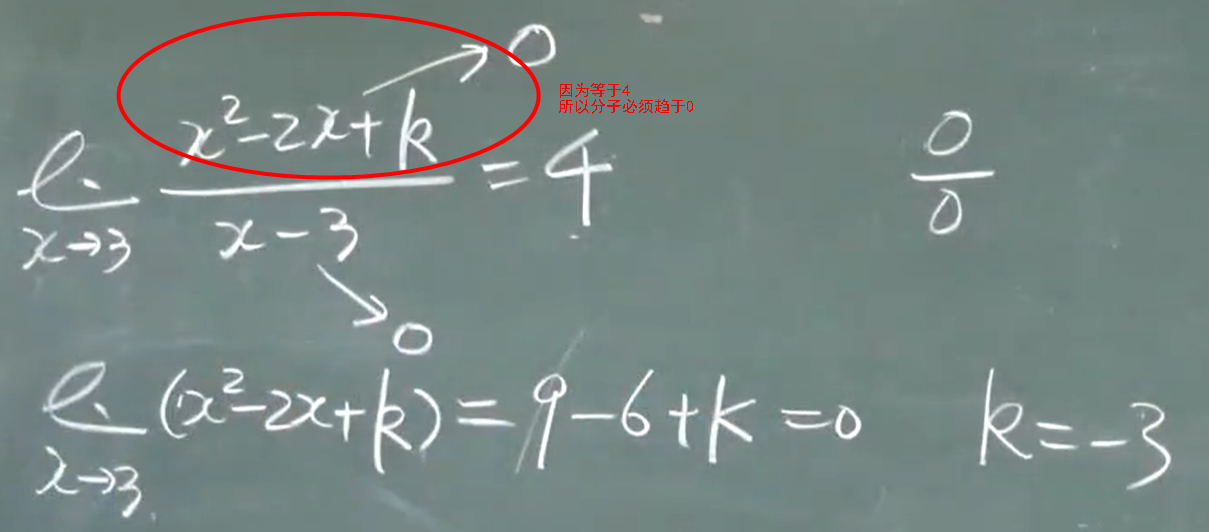 lim x→3 (x²-2x+k)/(x-3) = 4
→0
因为等于4
所以分子必须趋于0
0/0
→0
lim x→3 (x²-2x+k) = 9-6+k = 0
k = -3